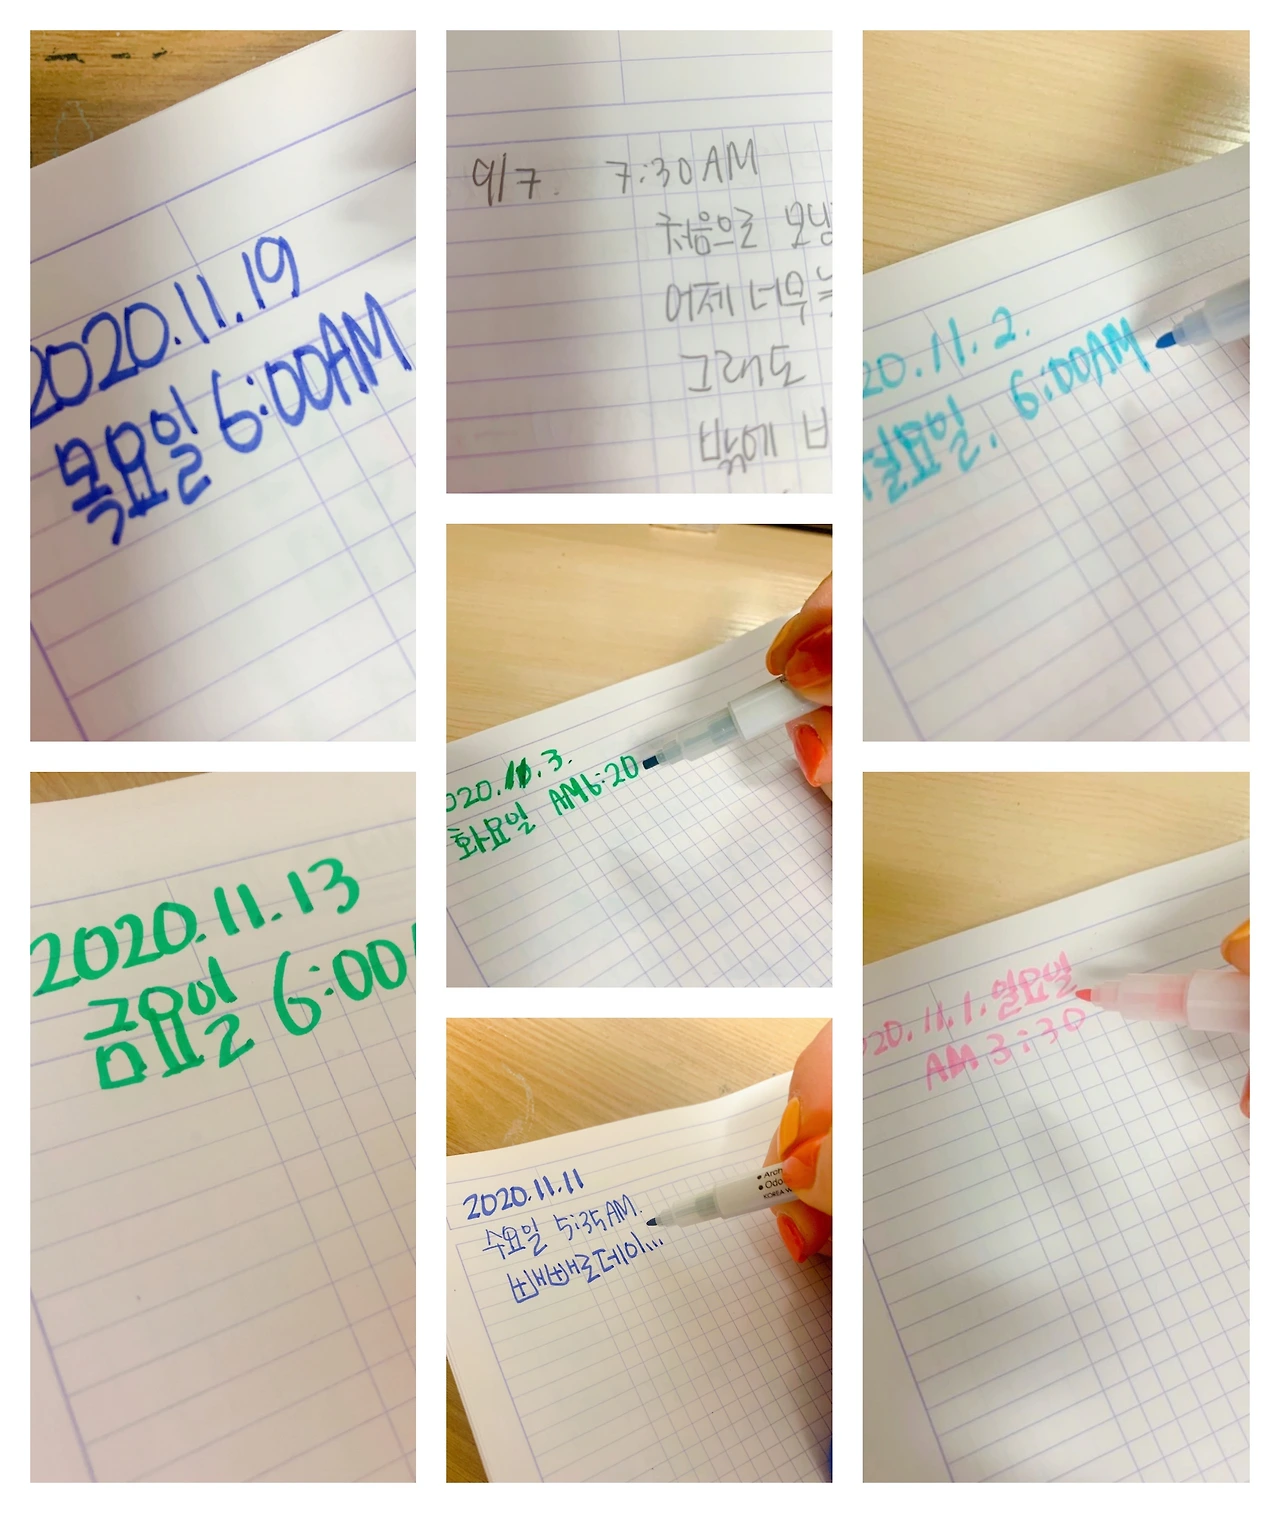 2020.11.19
목요일 6:00AM
9/7. 7:30AM
처음으로 모닝
어제 너무 늦
그래도
밤에
20.11.2.
월요일. 6:00AM
020.11.3.
화요일 AM6:20
2020.11.13
금요일 6:00
2020.11.11
수요일 5:35AM.
빼빼로데이...
20.11.1.일요일
AM 3:30